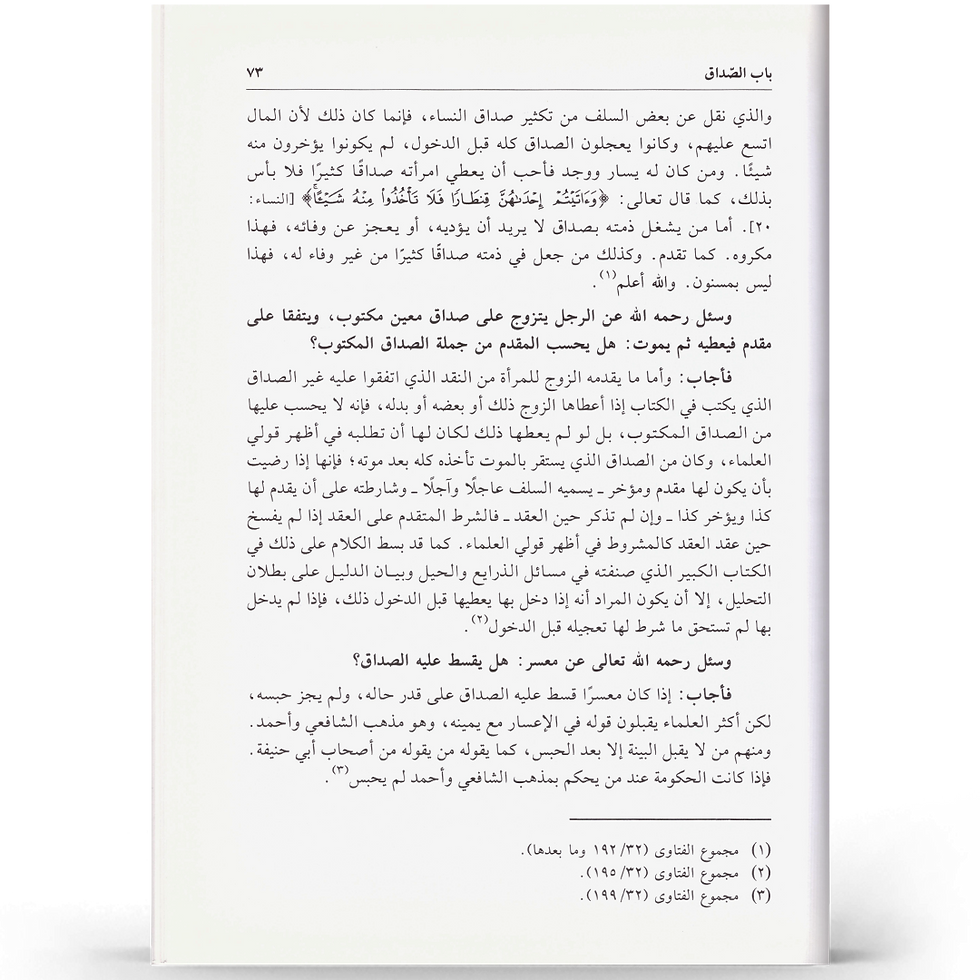 باب الصّداق ٧٣
والذي نقل عن بعض السلف من تكثير صداق النساء، فإنما كان ذلك لأن المال
اتسع عليهم، وكانوا يعجلون الصداق كله قبل الدخول، لم يكونوا يؤخرون منه
شيئًا. ومن كان له يسار ووجد فأحب أن يعطي امرأته صداقًا كثيرًا فلا بأس
بذلك، كما قال تعالى: ﴿وَءَاتَيْتُمْ إِحْدَىٰهُنَّ قِنطَارًا فَلَا تَأْخُذُوا۟ مِنْهُ شَيْـًٔا﴾ [النساء:
٢٠]. أما من يشغل ذمته بصداق لا يريد أن يؤديه، أو يعجز عن وفائه، فهذا
مكروه. كما تقدم. وكذلك من جعل في ذمته صداقًا كثيرًا من غير وفاء له، فهذا
ليس بمسنون. والله أعلم(١).
وسئل رحمه الله عن الرجل يتزوج على صداق معين مكتوب، ويتفقا على
مقدم فيعطيه ثم يموت: هل يحسب المقدم من جملة الصداق المكتوب؟
فأجاب: وأما ما يقدمه الزوج للمرأة من النقد الذي اتفقوا عليه غير الصداق
الذي يكتب في الكتاب إذا أعطاها الزوج ذلك أو بعضه أو بدله، فإنه لا يحسب عليها
من الصداق المكتوب، بل لو لم يعطها ذلك لكان لها أن تطلبه في أظهر قولي
العلماء، وكان من الصداق الذي يستقر بالموت تأخذه كله بعد موته؛ فإنها إذا رضيت
بأن يكون لها مقدم ومؤخر ـ يسميه السلف عاجلًا وآجلًا ـ وشارطته على أن يقدم لها
كذا ويؤخر كذا ـ وإن لم تذكر حين العقد ـ فالشرط المتقدم على العقد إذا لم يفسخ
حين عقد العقد كالمشروط في أظهر قولي العلماء. كما قد بسط الكلام على ذلك في
الكتاب الكبير الذي صنفته في مسائل الذرايع والحيل وبيان الدليل على بطلان
التحليل، إلا أن يكون المراد أنه إذا دخل بها يعطيها قبل الدخول ذلك، فإذا لم يدخل
بها لم تستحق ما شرط لها تعجيله قبل الدخول(٢).
وسئل رحمه الله تعالى عن معسر: هل يقسط عليه الصداق؟
فأجاب: إذا كان معسرًا قسط عليه الصداق على قدر حاله، ولم يجز حبسه،
لكن أكثر العلماء يقبلون قوله في الإعسار مع يمينه، وهو مذهب الشافعي وأحمد.
ومنهم من لا يقبل البينة إلا بعد الحبس، كما يقوله من يقوله من أصحاب أبي حنيفة.
فإذا كانت الحكومة عند من يحكم بمذهب الشافعي وأحمد لم يحبس(٣).
(١) مجموع الفتاوى (٣٢/ ١٩٢ وما بعدها).
(٢) مجموع الفتاوى (٣٢/ ١٩٥).
(٣) مجموع الفتاوى (٣٢/ ١٩٩).